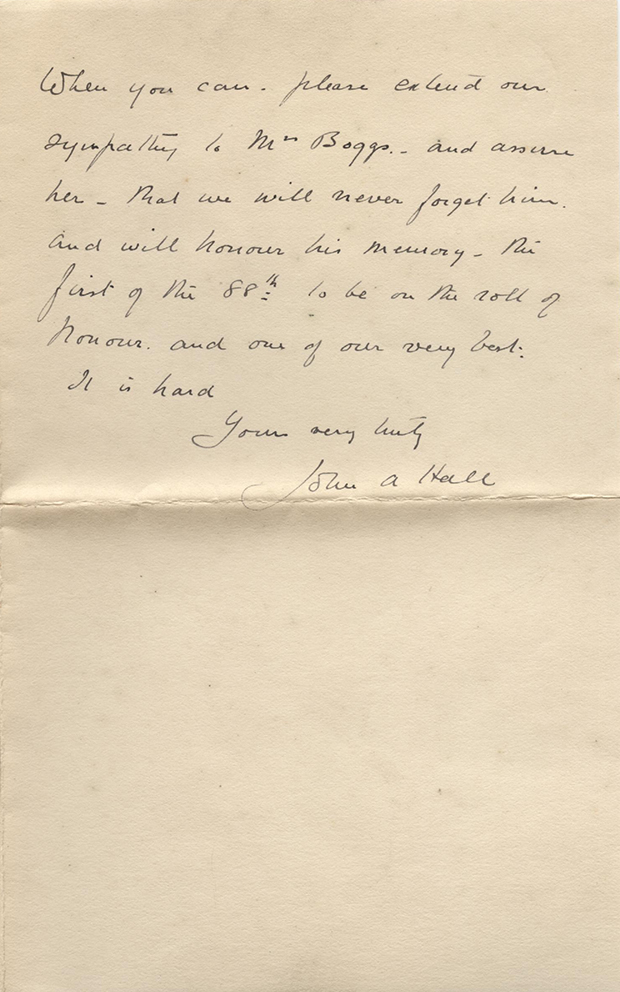 When you can - please extend our
sympathy to Mrs Boggs. - and assure
her - that we will never forget him.
and will honour his memory - the
first of the 88th to be on the roll of
honour. and one of our very best.
It is hard
Yours very truly
John A Hall